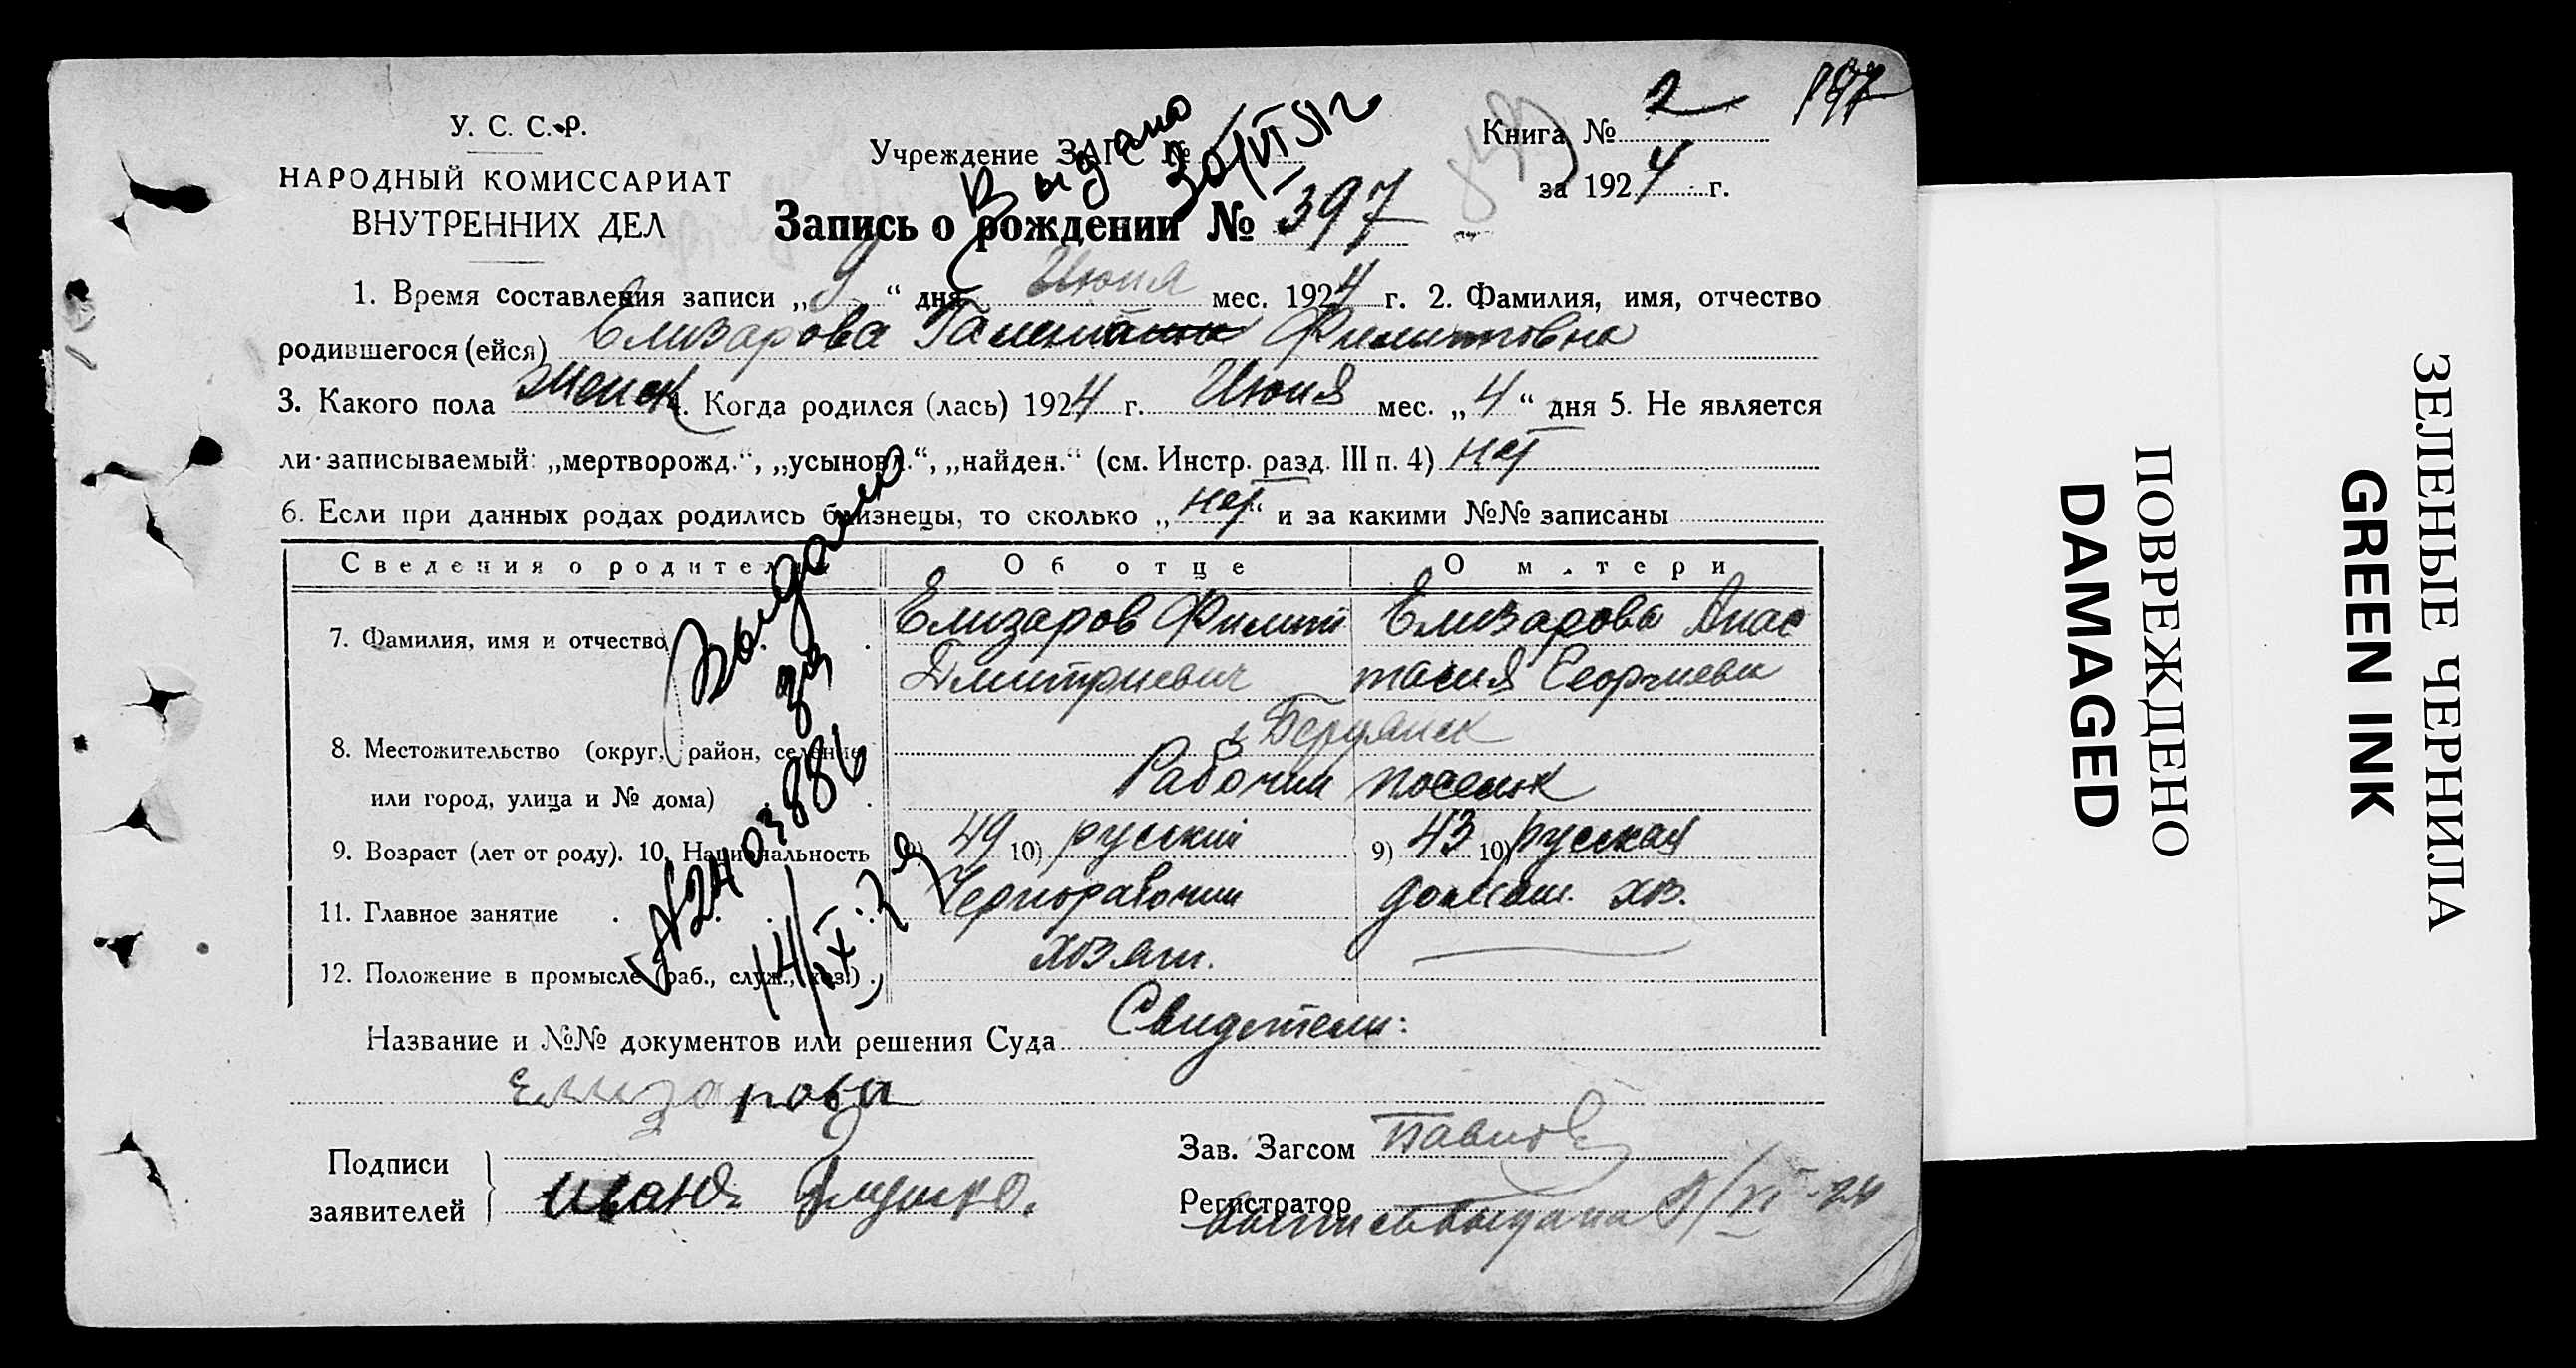 У. С. С. Р.
НАРОДНЫЙ КОМИССАРИАТ
ВНУТРЕННИХ ДЕЛ
Учреждение ЗАГС №
Выдано
30/VI 51 г
Книга № 2
197
за 1924 г.
Запись о рождении № 397
1. Время составления записи „9“ дня Июня мес. 1924 г. 2. Фамилия, имя, отчество
родившегося (ейся) Елизарова Филипповна
3. Какого пола женск 4. Когда родился (лась) 1924 г. Июня мес. „4“ дня 5. Не является
ли записываемый: „мертворожд.“, „усыновл.“, „найден.“ (см. Инстр. разд. III п. 4) нет
6. Если при данных родах родились близнецы, то сколько „нет“ и за какими №№ записаны
Сведения о родителях
Об отце
О матери
7. Фамилия, имя и отчество
Елизаров Филипп
Елизарова Анас
Дмитриевич
тасия Георгиевн
8. Местожительство (округ, район, селение
г. Бердянск
или город, улица и № дома)
Рабочий поселок
9. Возраст (лет от роду). 10. Национальность
9) 49 10) русский
9) 43 10) русская
11. Главное занятие
Чернорабочий
домаш. хоз.
12. Положение в промысле (раб., служ., хоз.)
хозяин.
Выдано
№ 2403886
14/IX
Название и №№ документов или решения Суда Свидетели:
Елизарова
Подписи
заявителей
Иван Глушко.
Зав. Загсом Павлов
Регистратор
Выпись выдана 9/VI-24
ПОВРЕЖДЕНО
DAMAGED
ЗЕЛЕНЫЕ ЧЕРНИЛА
GREEN INK